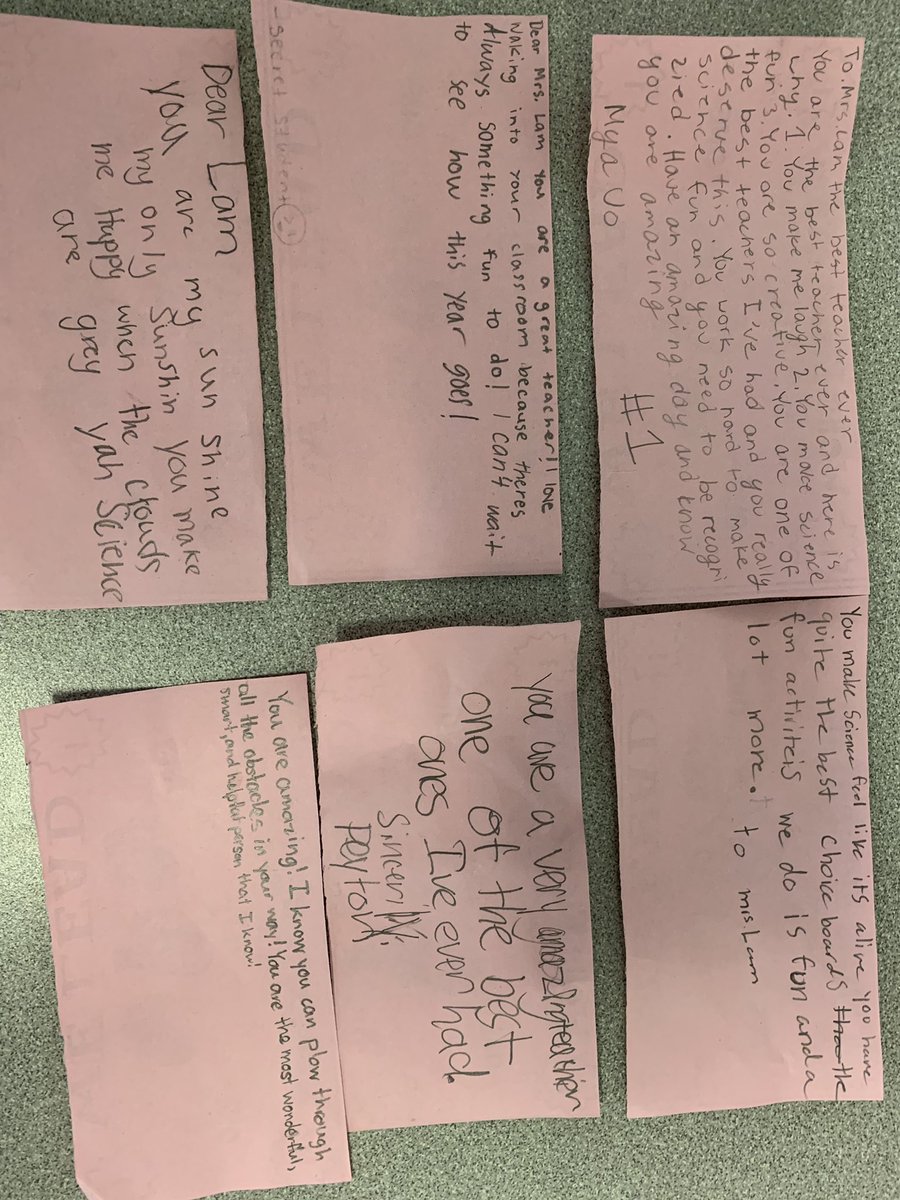 To Mrs. Lam the best teacher ever
You are the best teacher ever and here is
why. 1. You make me laugh 2. You make science
fun 3. You are so creative. You are one of
the best teachers I've had and you really
deserve this. You work so hard to make
science fun and you need to be recogni
zied. Have an amazing day and know
you are amazing
Mya Vo #1
You make Science feel like its alive you have
quite the best choice boards the the
fun activiteis we do is fun and a
lot more. to mrs. Lam
Dear Mrs. Lam you are a great teacher! I love
walking into your classroom because theres
Always something fun to do! I can't wait
to see how this year goes!
- Secret Student
you are a very amazing teacher
one of the best
ones I've ever had.
Sincerlly,
Peyton
Dear Lam my sun shine
you are my Sunshin you make
my only when the clouds
me Happy grey yah Science
are
You are amazing! I know you can plow through
all the obstacles in your way! You are the most wonderful,
smart, and helpful person that I know!